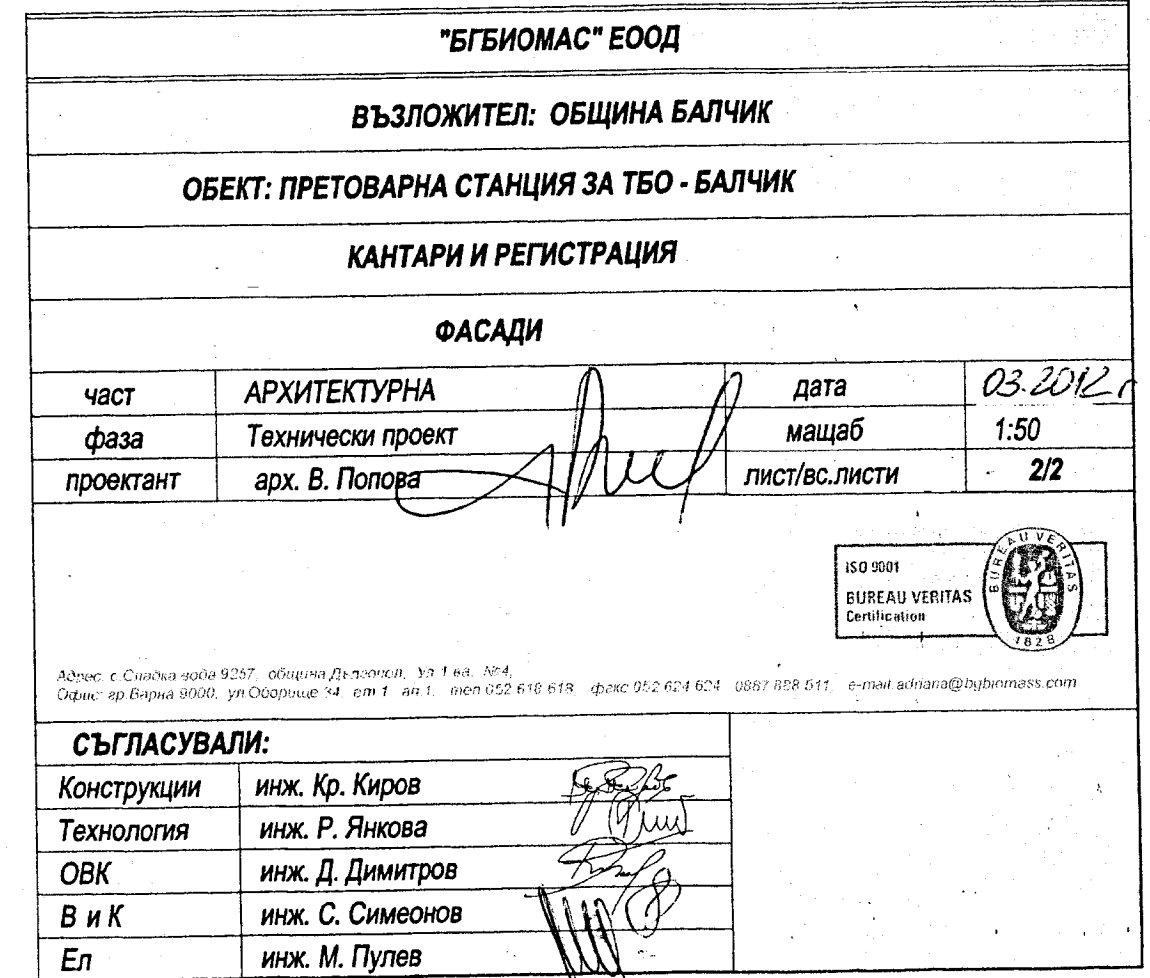 "БГБИОМАС" ЕООД
ВЪЗЛОЖИТЕЛ: ОБЩИНА БАЛЧИК
ОБЕКТ: ПРЕТОВАРНА СТАНЦИЯ ЗА ТБО - БАЛЧИК
КАНТАРИ И РЕГИСТРАЦИЯ
ФАСАДИ
част АРХИТЕКТУРНА дата 03.2012 г
фаза Технически проект мащаб 1:50
проектант арх. В. Попова лист/вс.листи 2/2
ISO 9001
BUREAU VERITAS
Certification
BUREAU VERITAS
1828
Адрес: с.Сладка вода 9257, община Дългопол, Ул.1-ва, №4,
Офис: гр.Варна 9000, ул.Оборище 34, ет 1, ап.1, тел 052 618 618, факс 052 624 624, 0887 828 511, e-mail:adriana@bgbiomass.com
СЪГЛАСУВАЛИ:
Конструкции инж. Кр. Киров
Технология инж. Р. Янкова
ОВК инж. Д. Димитров
В и К инж. С. Симеонов
Ел инж. М. Пулев